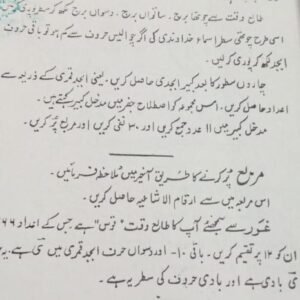 طالع وقت سے چوتھا برج ۔ ساتواں برج ۔ دسواں برج لکھ کر سطر
اسی طرح چوتھی سطر اسماء خداوندی کی اگر چالیس حروف سے کم ہو تو باقی حروف
ابجد لکھ کر پوری کر لیں۔
چاروں سطور کا بعد کبیر ابجدی حاصل کریں۔ یعنی ابجد قمری کے ذریعہ سے
اعداد حاصل کریں۔ اس مجموعہ کو اصطلاح جفر میں مدخل کبیر کہتے ہیں۔
مدخل کبیر میں ۱۱ عدد جمع کریں اور ۳۰ نفی کریں اور مربع پُر کریں۔
مربع پُر کرنے کا طریق آخیر میں ملاحظہ فرمائیں۔
اس مربع میں سے ارقام الاشاطیہ حاصل کریں۔
غور سے سمجھئے آپ کا طالع وقت "قوس" ہے جس کے اعداد ۱۶۶
ان کو ۱۲ پر تقسیم کریں۔ باقی ۱۰۔ اور دسواں حرف ابجد قمری میں تی ہے۔
تی بادی ہے اور بادی حروف کی سطر یہ ہے۔